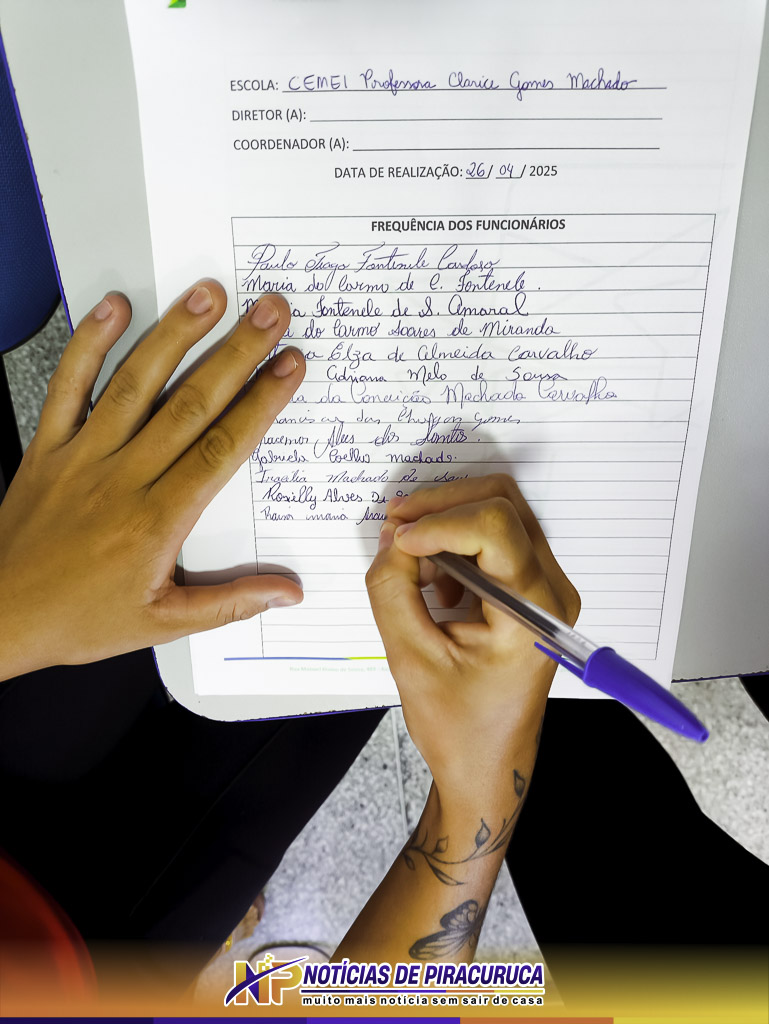 ESCOLA: CEMEI Professora Clarice Gomes Machado
DIRETOR (A):
COORDENADOR (A):
DATA DE REALIZAÇÃO: 26/ 04 / 2025
FREQUÊNCIA DOS FUNCIONÁRIOS
Paulo Tiago Fontenele Cardoso
Maria do Carmo de C. Fontenele.
Fontenele de S. Amaral
do Carmo Soares de Miranda
Elza de Almeida Carvalho
Adriana Melo de Sousa
da Conceição Machado Carvalho
das Chagas Gomes
Alves dos Santos.
Gabriela Coelho machado.
Machado de
Rosielly Alves De
maria
NP NOTÍCIAS DE PIRACURUCA
muito mais notícia sem sair de casa